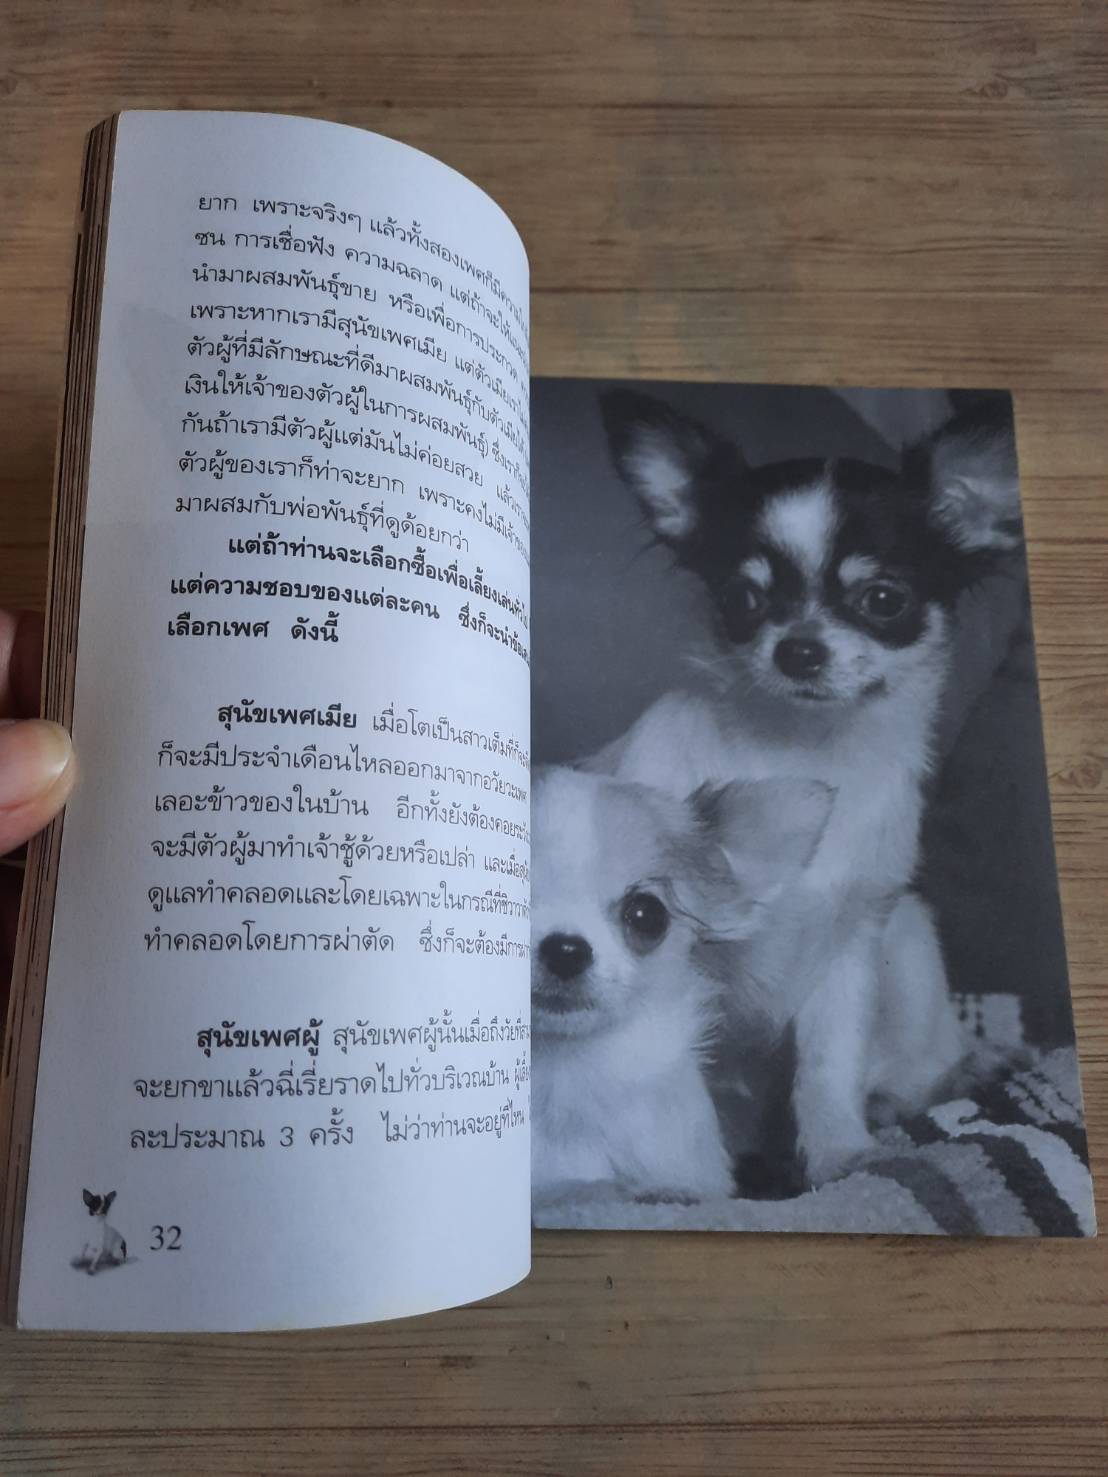 ยาก เพราะจริงๆ แล้วทั้งสองเพศก็มีความ
ซน การเชื่อฟัง ความฉลาด แต่ถ้าจะให้
นำมาผสมพันธุ์ขาย หรือเพื่อการประกวด
เพราะหากเรามีสุนัขเพศเมีย แต่ตัวเมียเรา
ตัวผู้ที่มีลักษณะที่ดีมาผสมพันธุ์กับตัวเมียได้
เงินให้เจ้าของตัวผู้ในการผสมพันธุ์) ซึ่งเราก็
กันถ้าเรามีตัวผู้แต่มันไม่ค่อยสวย แล้วเรา
ตัวผู้ของเราก็ท่าจะยาก เพราะคงไม่มีเจ้าของ
มาผสมกับพ่อพันธุ์ที่ดูด้อยกว่า
แต่ถ้าท่านจะเลือกซื้อเพื่อเลี้ยงเล่นทั่วไป
แต่ความชอบของแต่ละคน ซึ่งก็จะนำข้อ
เลือกเพศ ดังนี้
สุนัขเพศเมีย เมื่อโตเป็นสาวเต็มที่ก็จะ
ก็จะมีประจำเดือนไหลออกมาจากอวัยวะเพศ
เลอะข้าวของในบ้าน อีกทั้งยังต้องคอยระวัง
จะมีตัวผู้มาทำเจ้าชู้ด้วยหรือเปล่า และเมื่อ
ดูแลทำคลอดและโดยเฉพาะในกรณีที่ชิวาวา
ทำคลอดโดยการผ่าตัด ซึ่งก็จะต้องมีการ
สุนัขเพศผู้ สุนัขเพศผู้นั้นเมื่อถึงวัยที่
จะยกขาแล้วฉี่เรี่ยราดไปทั่วบริเวณบ้าน
ละประมาณ 3 ครั้ง ไม่ว่าท่านจะอยู่ที่ไหน
32